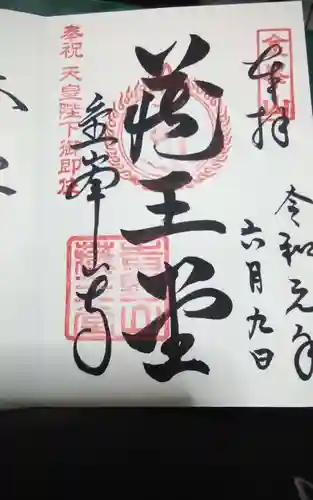 奉拝
令和元年
六月九日
蔵王堂
金峯山寺
奉祝 天皇陛下御即位